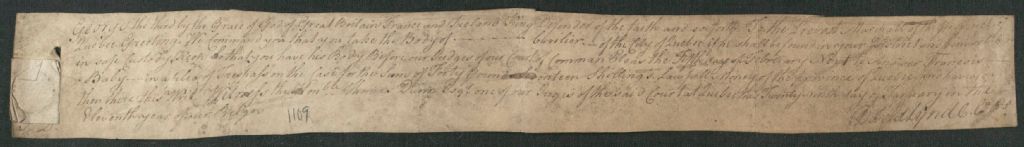 George the third by the Grace of God of Great Britain France and Ireland King Defender of the faith and so forth To the Provost Marshal of the Province of
Quebec Greeting We Command you that you take the Body of Cuvilier of the City of Quebec if he shall be found in your District and him
in safe Custody Keep so that you have his Body Before our Judges of our Court of Common Pleas the day of February Next to Answer Francois
Baby in a plea of Trespass on the Case for the Sum of Forty Pounds Shillings Lawfull Money of the Province of Quebec and have you
then there this Writ Witness the Dunn Esqr. one of our Judges of the said Court at Quebec the Twenty day of January in the
Eleventh year of our Reign
1169
David Lynd